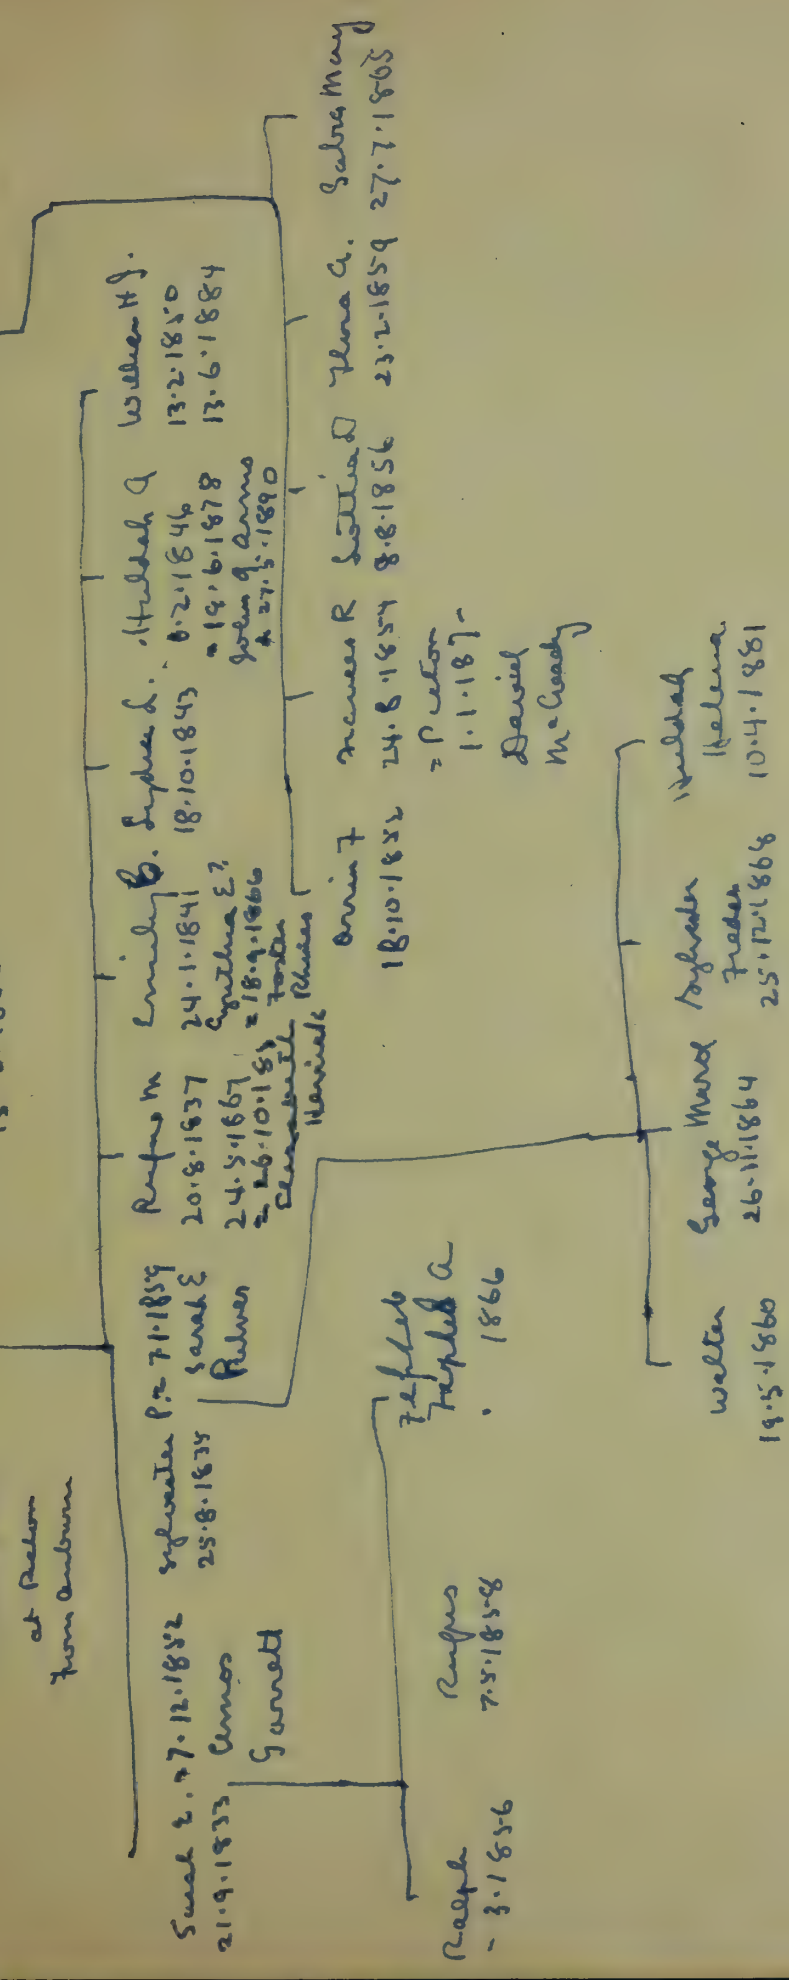 at Picton
from Auburn
Sarah E. = 7.12.1852
21.9.1833
Amos
Garrett
Sylvester P. = 7.1.1859
25.8.1835
Sarah E
Pulver
Rufus M
20.8.1837
24.5.1867
Elizabeth
Emily B.
24.1.1841
Cynthia E?
= 18.9.1866
Lydia L.
18.10.1843
Huldah A
6.2.1846
= 19.6.1878
John G Arms
27.5.1890
William H J.
13.2.1850
13.6.1884
Orrin F
18.10.1852
Frances R
24.8.1854
= Picton
1.1.187-
Daniel
McCready
Lottia D
8.8.1856
Thera A.
23.2.1859
Sabra May
27.7.1865
Ralph
- 3.1856
Rufus
7.5.1858
A
1866
Walter
19.5.1860
George Ward
26.11.1864
Sylvester
25.12.1868
Huldah
Helena
10.4.1881